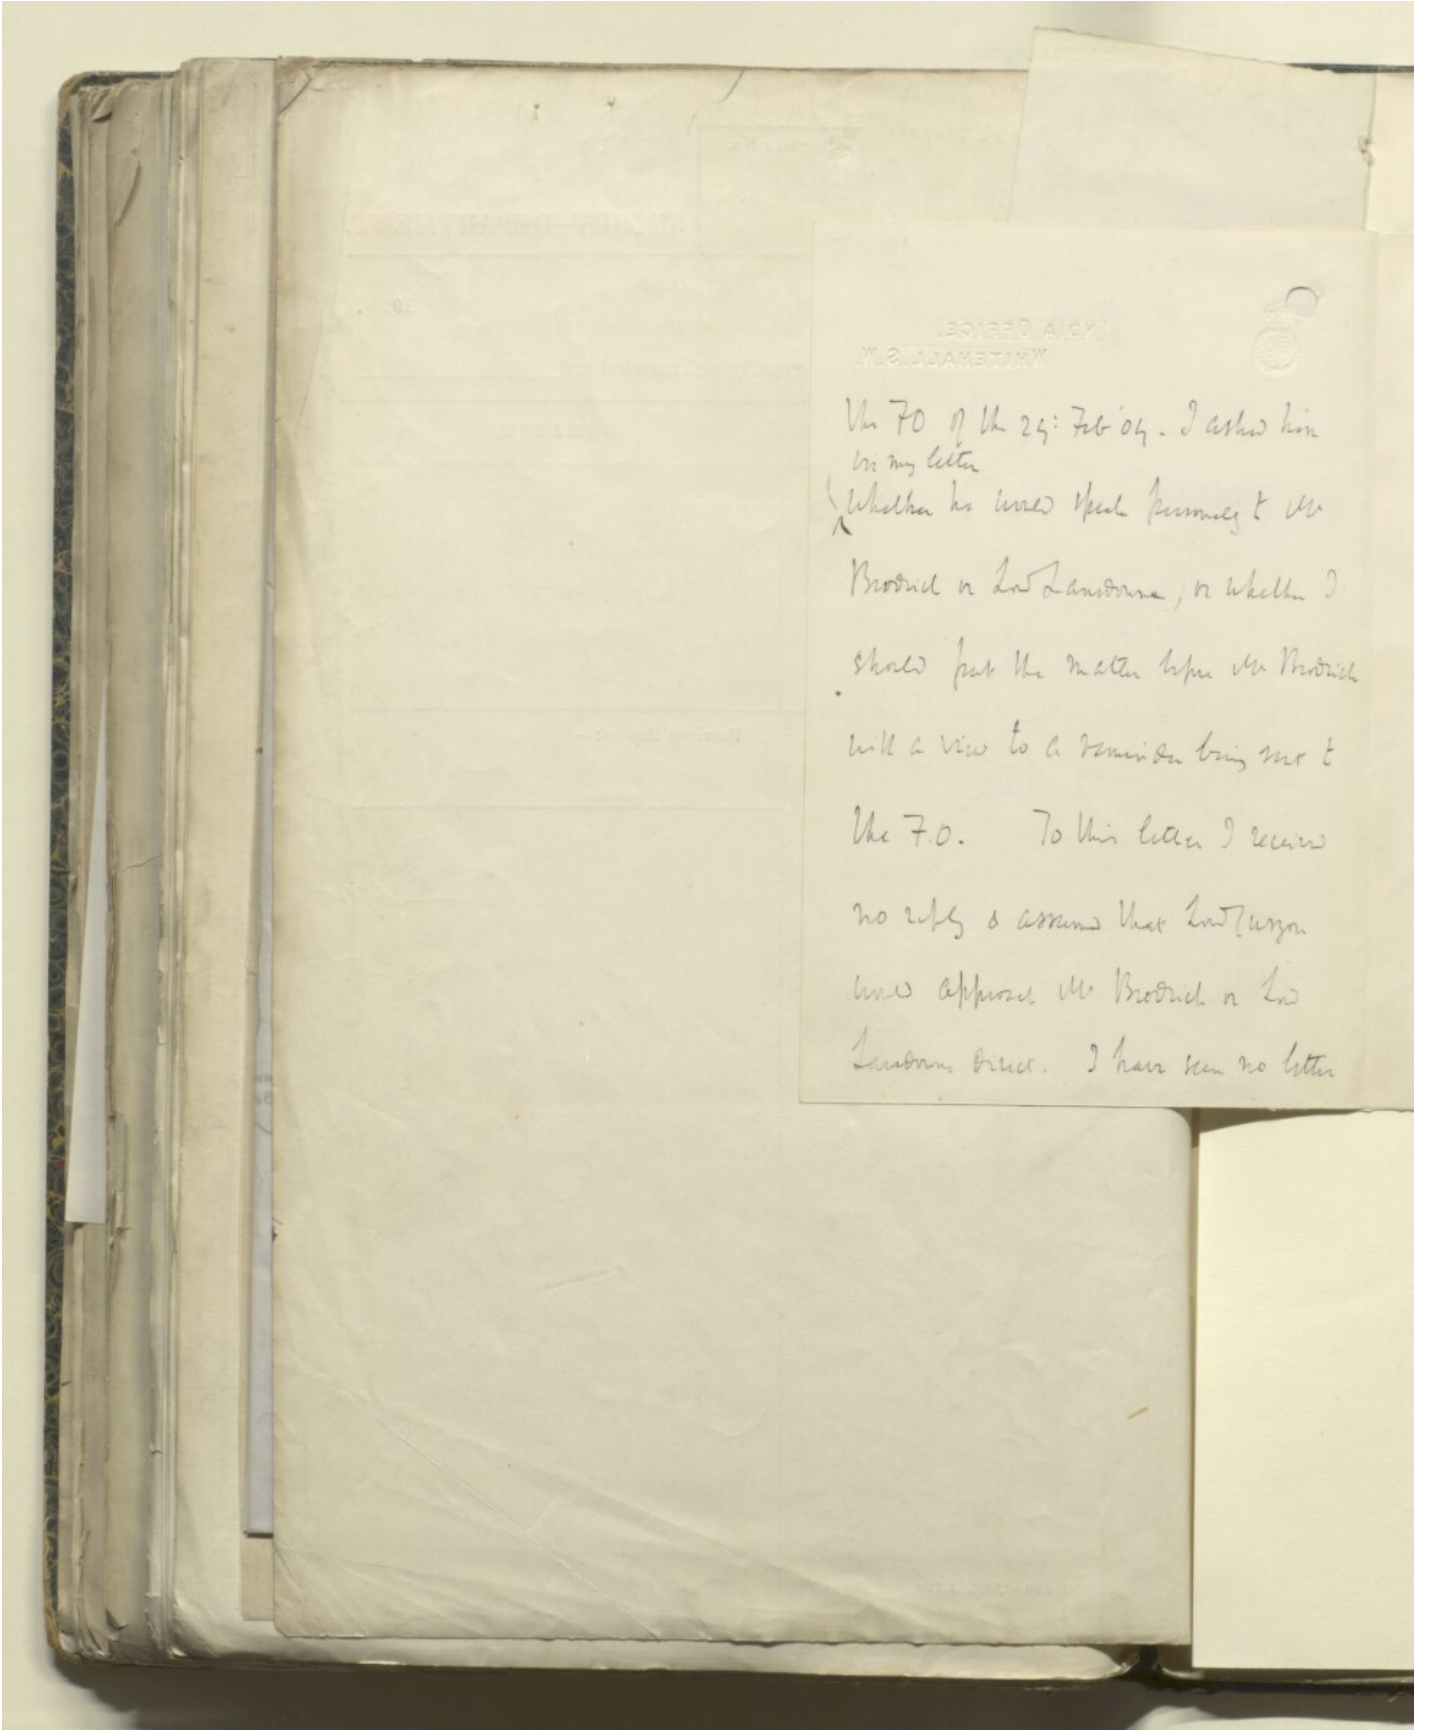 INDIA OFFICE,
WHITEHALL, S.W.
the FO of the 29: Feb '04. I asked him
in my letter
whether he would speak personally to Mr
Brodrick or Lord Lansdowne, or whether I
should put the matter before Mr Brodrick
with a view to a reminder being sent to
the F.O. To this letter I received
no reply & assumed that Lord Curzon
would approach Mr Brodrick or Lord
Lansdowne direct. I have seen no letter
SECRET DEPARTMENT.
Previous Papers:—